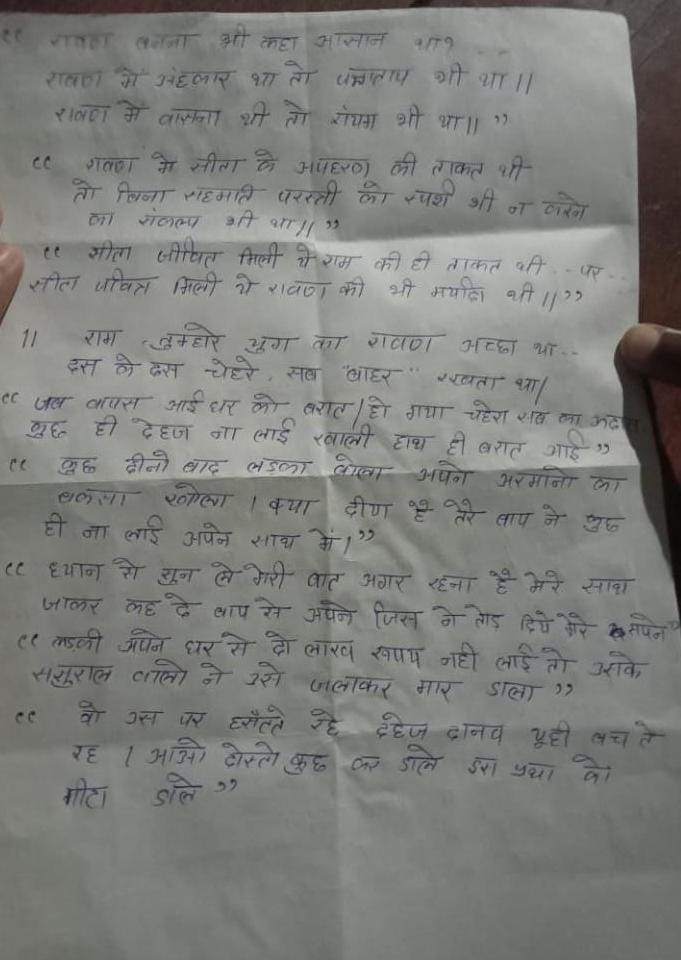 “ रावण बनना भी कहा आसान था?
रावण में अंहकार था तो पश्चाताप भी था।।
रावण में वासना थी तो संयम भी था।। ”
“ रावण मे सीता के अपहरण की ताकत थी
तो बिना सहमति परस्त्री को स्पर्श भी न करने
का संकल्प भी था।। ”
“ सीता जीवित मिली ये राम की ही ताकत थी -- पर --
सीता पवित्र मिली ये रावण की भी मर्यादा थी।। ”
।। राम तुम्हारे युग का रावण अच्छा था --
दस के दस चेहरे, सब "बाहर" रखता था।
“ जब वापस आई घर को बरात। हो गया चेहरा सब का
कुछ ही देहज ना लाई खाली हाथ ही बरात आई ”
“ कुछ दीनो बाद लडका बोला अपने अरमानो का
बकसा खोला। क्या दीया है तेरे बाप ने कुछ
ही ना लाई अपने साथ में। ”
“ ध्यान से सुन ले मेरी बात अगर रहना है मेरे साथ
जाकर कह दे बाप से अपने जिस ने तोड दिये मेरे सपने ”
“ लडकी अपने घर से दो लाख रूपय नही लाई तो उसके
ससुराल वालो ने उसे जलाकर मार डाला ”
“ वो उस पर हसँतते रहे देहेज दानव यूही बच ते
रह। आओ दोस्तो कुछ कर डाले इस प्रथा को
मीटा डाले ”